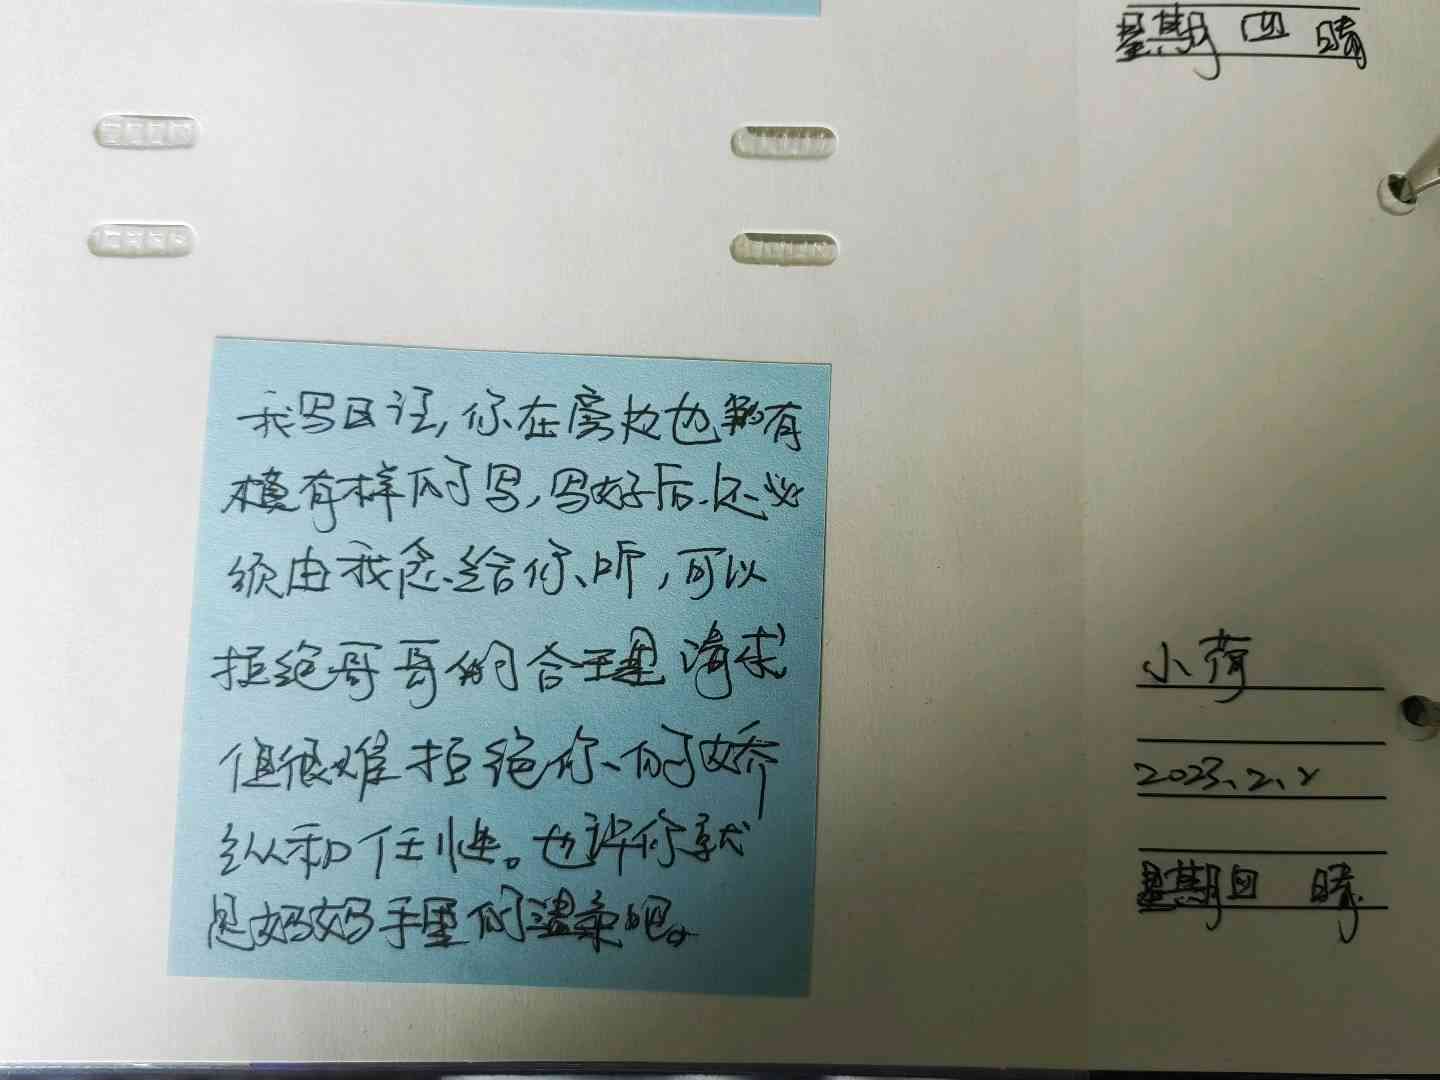 星期四 晴
我写日记，你在旁边也有
模有样的写，写好后还必
须由我念给你听，可以
拒绝哥哥的合理请求
但很难拒绝你的娇
纵和任性。也许你就
是妈妈手里的温柔吧。
小荷
2023.2.2
星期四 晴